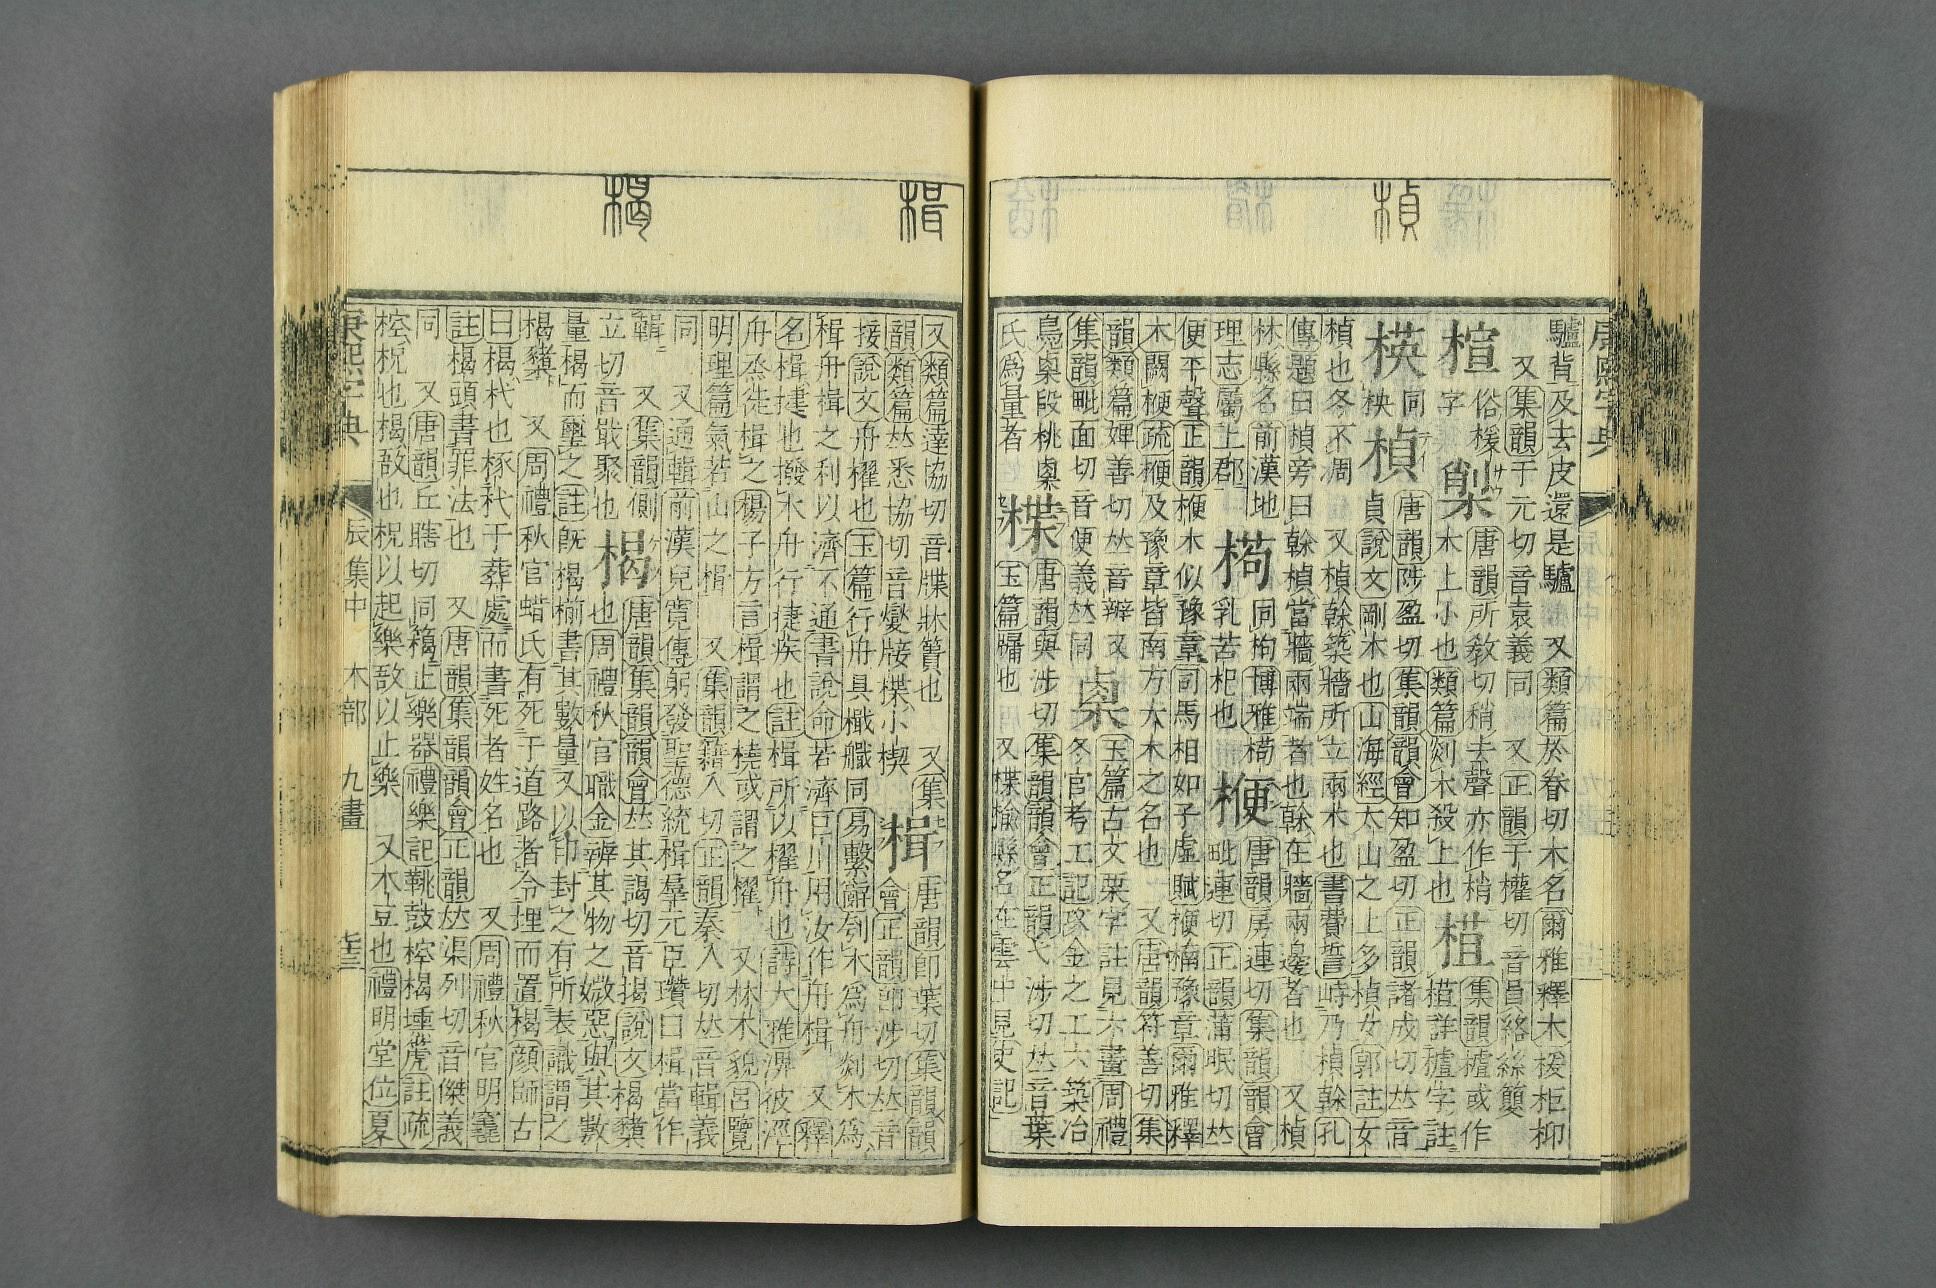 楨
驢背及去皮還是驢 又類篇於眷切木名爾雅釋木楥柜柳
又集韻于元切音袁義同 又正韻于權切音員絡絲籰
楦 俗楥字 㮐 唐韻所敎切稍去聲亦作梢 木上小也類篇剡木殺上也 楂 集韻樝或作楂詳樝字註
楧 同柍 楨 唐韻陟盈切集韻韻會知盈切正韻諸成切𠀤音貞說文剛木也山海經太山之上多楨女郭註女
楨也冬不凋 又楨榦築牆所立兩木也書費誓峙乃楨榦孔
傳題曰楨旁曰榦楨當牆兩端者也榦在牆兩邊者也 又楨
林縣名前漢地理志屬上郡 㮋 同枸博雅㮋乳苦杞也 楩 唐韻房連切集韻韻會毗連切正韻蒲眠切𠀤
便平聲正韻楩木似豫章司馬相如子虛賦楩楠豫章爾雅釋
木闕楩疏楩及豫章皆南方大木之名也 又唐韻符善切集
韻類篇婢善切𠀤音辨又集韻毗面切音便義𠀤同 㮚 玉篇古文栗字註見六畫周禮冬官考工記攻金之工六築冶
鳧㮚段桃㮚氏爲量者 楪 唐韻與涉切集韻韻會正韻弋涉切𠀤音葉玉篇牖也 又楪楡縣名在雲中見史記
楫
楬
又類篇達協切音牒牀簀也 又集韻韻
類篇𠀤悉協切音燮㛍楪小楔 楫 唐韻卽葉切集韻韻會正韻卽涉切𠀤音
接說文舟櫂也玉篇行舟具檝艥同易繫辭刳木爲舟剡木爲
楫舟楫之利以濟不通書說命若濟巨川用汝作舟楫 又釋
名楫捷也撥水舟行捷疾也註楫所以櫂舟也詩大雅淠彼涇
舟烝徒楫之 楊子方言楫謂之橈或謂之櫂 又林木貌呂覽
明理篇氣若山之楫 又集韻籍入切正韻秦入切𠀤音輯義
同 又通輯前漢兒寬傳躬發聖德統楫羣元臣瓚曰楫當作
輯 又集韻側立切音戢聚也 楬 唐韻集韻韻會𠀤其謁切音揭說文楬櫫也周禮秋官職金辨其物之媺惡與其數
量楬而璽之註旣楬櫤書其數量又以印封之有所表識謂之
楬櫫 又周禮秋官蜡氏有死于道路者令埋而置楬顔師古
曰楬杙也椓杙于葬處而書死者姓名也 又周禮秋官明竁
註楬頭書罪法也 又唐韻集韻韻會正韻𠀤渠列切音傑義
同 又唐韻丘瞎切同䈓止樂器禮樂記鞉鼓椌楬壎箎註疏
椌柷也楬敔也柷以起樂敔以止樂 又木豆也禮明堂位夏
康熙字典 辰集中 木部 九畫